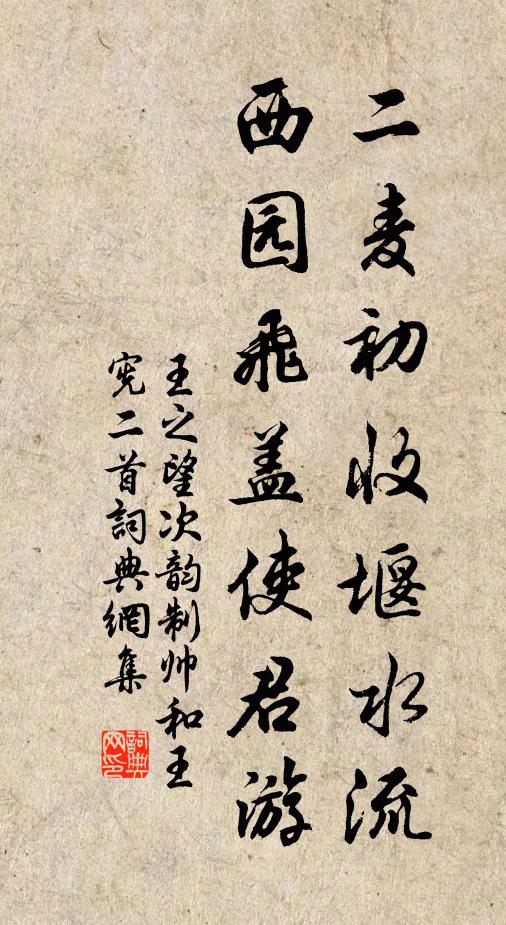 二麦初收堰水流
西园飛盖使君游
王之望次韵制帅和王
宪二首詞典網集
詞典网印